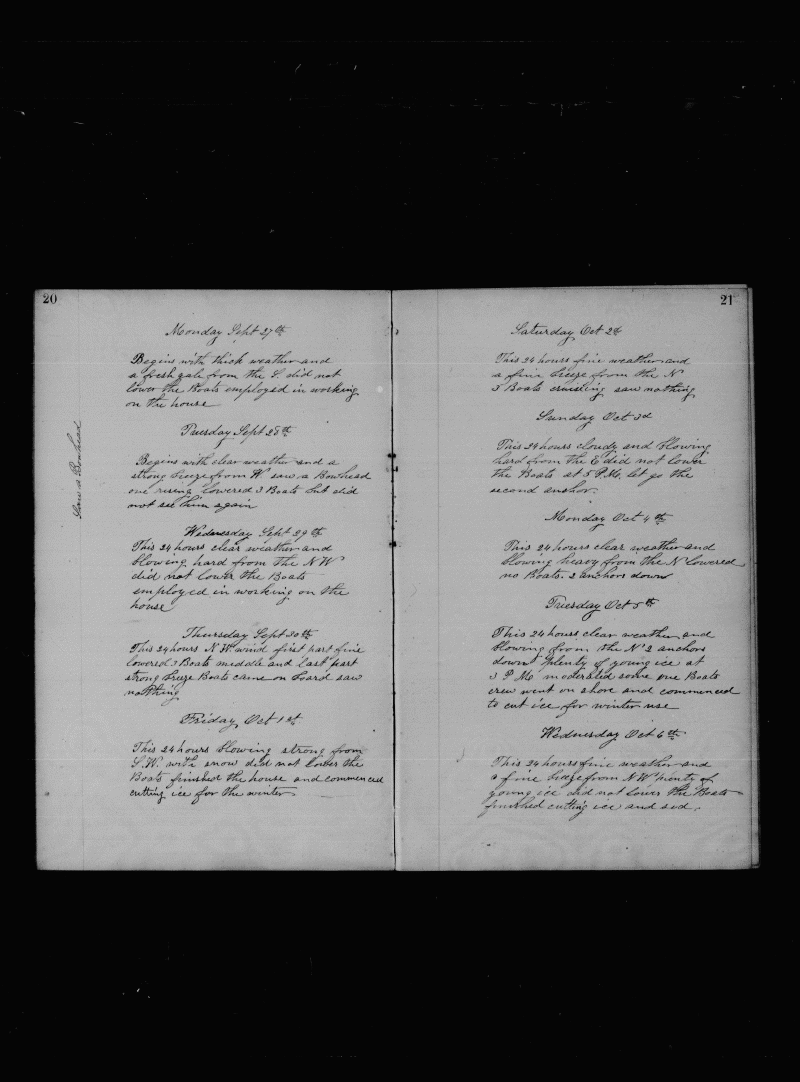 20
Monday Sept 27th
Begins with thick weather and
a fresh gale from the S did not
lower the Boats employed in working
on the house
Tuesday Sept 28th
Saw a Bowhead
Begins with clear weather and a
strong breeze from W. saw a Bowhead
one rising lowered 3 Boats but did
not see him again
Wednesday Sept 29th
This 24 hours clear weather and
blowing hard from the NW
did not lower the Boats
employed in working on the
house
Thursday Sept 30th
This 24 hours N.W. wind first part fine
lowered 3 Boats middle and last part
strong breeze Boats came on board saw
nothing
Friday Oct 1st
This 24 hours blowing strong from
S.W. with snow did not lower the
Boats finished the house and commenced
cutting ice for the winter
21
Saturday Oct 2d
This 24 hours fine weather and
a fine breeze from the N
3 Boats cruising saw nothing
Sunday Oct 3d
This 24 hours cloudy and blowing
hard from the E did not lower
the Boats at 5 P.M. let go the
second anchor.
Monday Oct 4th
This 24 hours clear weather and
blowing heavy from the N lowered
no Boats. 2 anchors down
Tuesday Oct 5th
This 24 hours clear weather and
blowing from the N 2 anchors
down plenty of young ice at
3 P.M. moderated some one Boats
crew went on shore and commenced
to cut ice for winter use
Wednesday Oct 6th
This 24 hours fine weather and
a fine breeze from NW plenty of
young ice did not lower the Boats
finished cutting ice and sod.